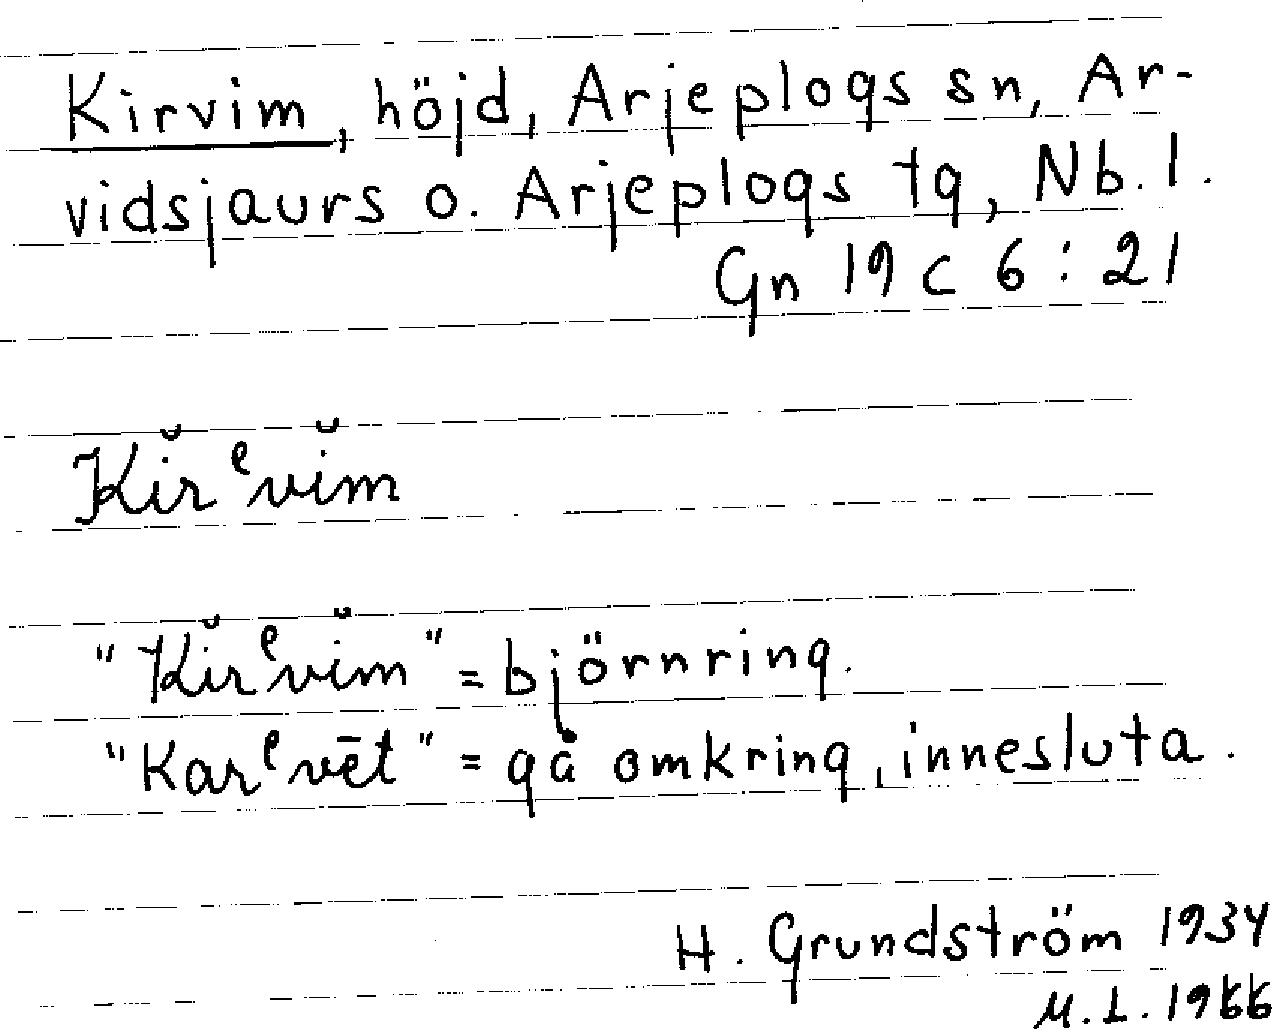 Kirvim, höjd, Arjeplogs sn, Ar-
vidsjaurs o. Arjeplogs tg, Nb. l.
Gn 19 c 6 : 21
Kĭrᵉvĭm
"Kĭrᵉvĭm" = björnring.
"Karᵉvēt" = gå omkring, innesluta.
H. Grundström 1934
M. L. 1966